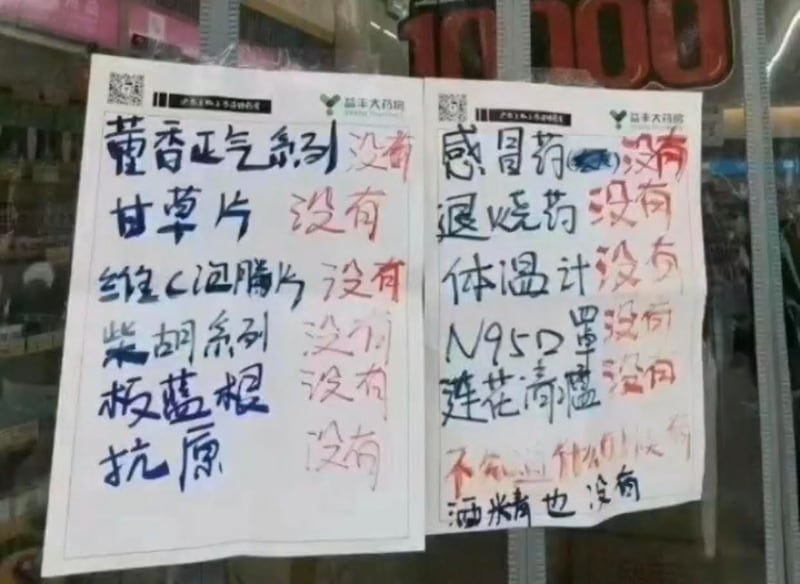 10000
益丰大药房
藿香正气系列 没有
甘草片 没有
维C泡腾片 没有
柴胡系列 没有
板蓝根 没有
抗原 没有
益丰大药房
感冒药 没有
退烧药 没有
体温计 没有
N95口罩 没有
莲花清瘟 没有
不 什么 没有
酒精也没有